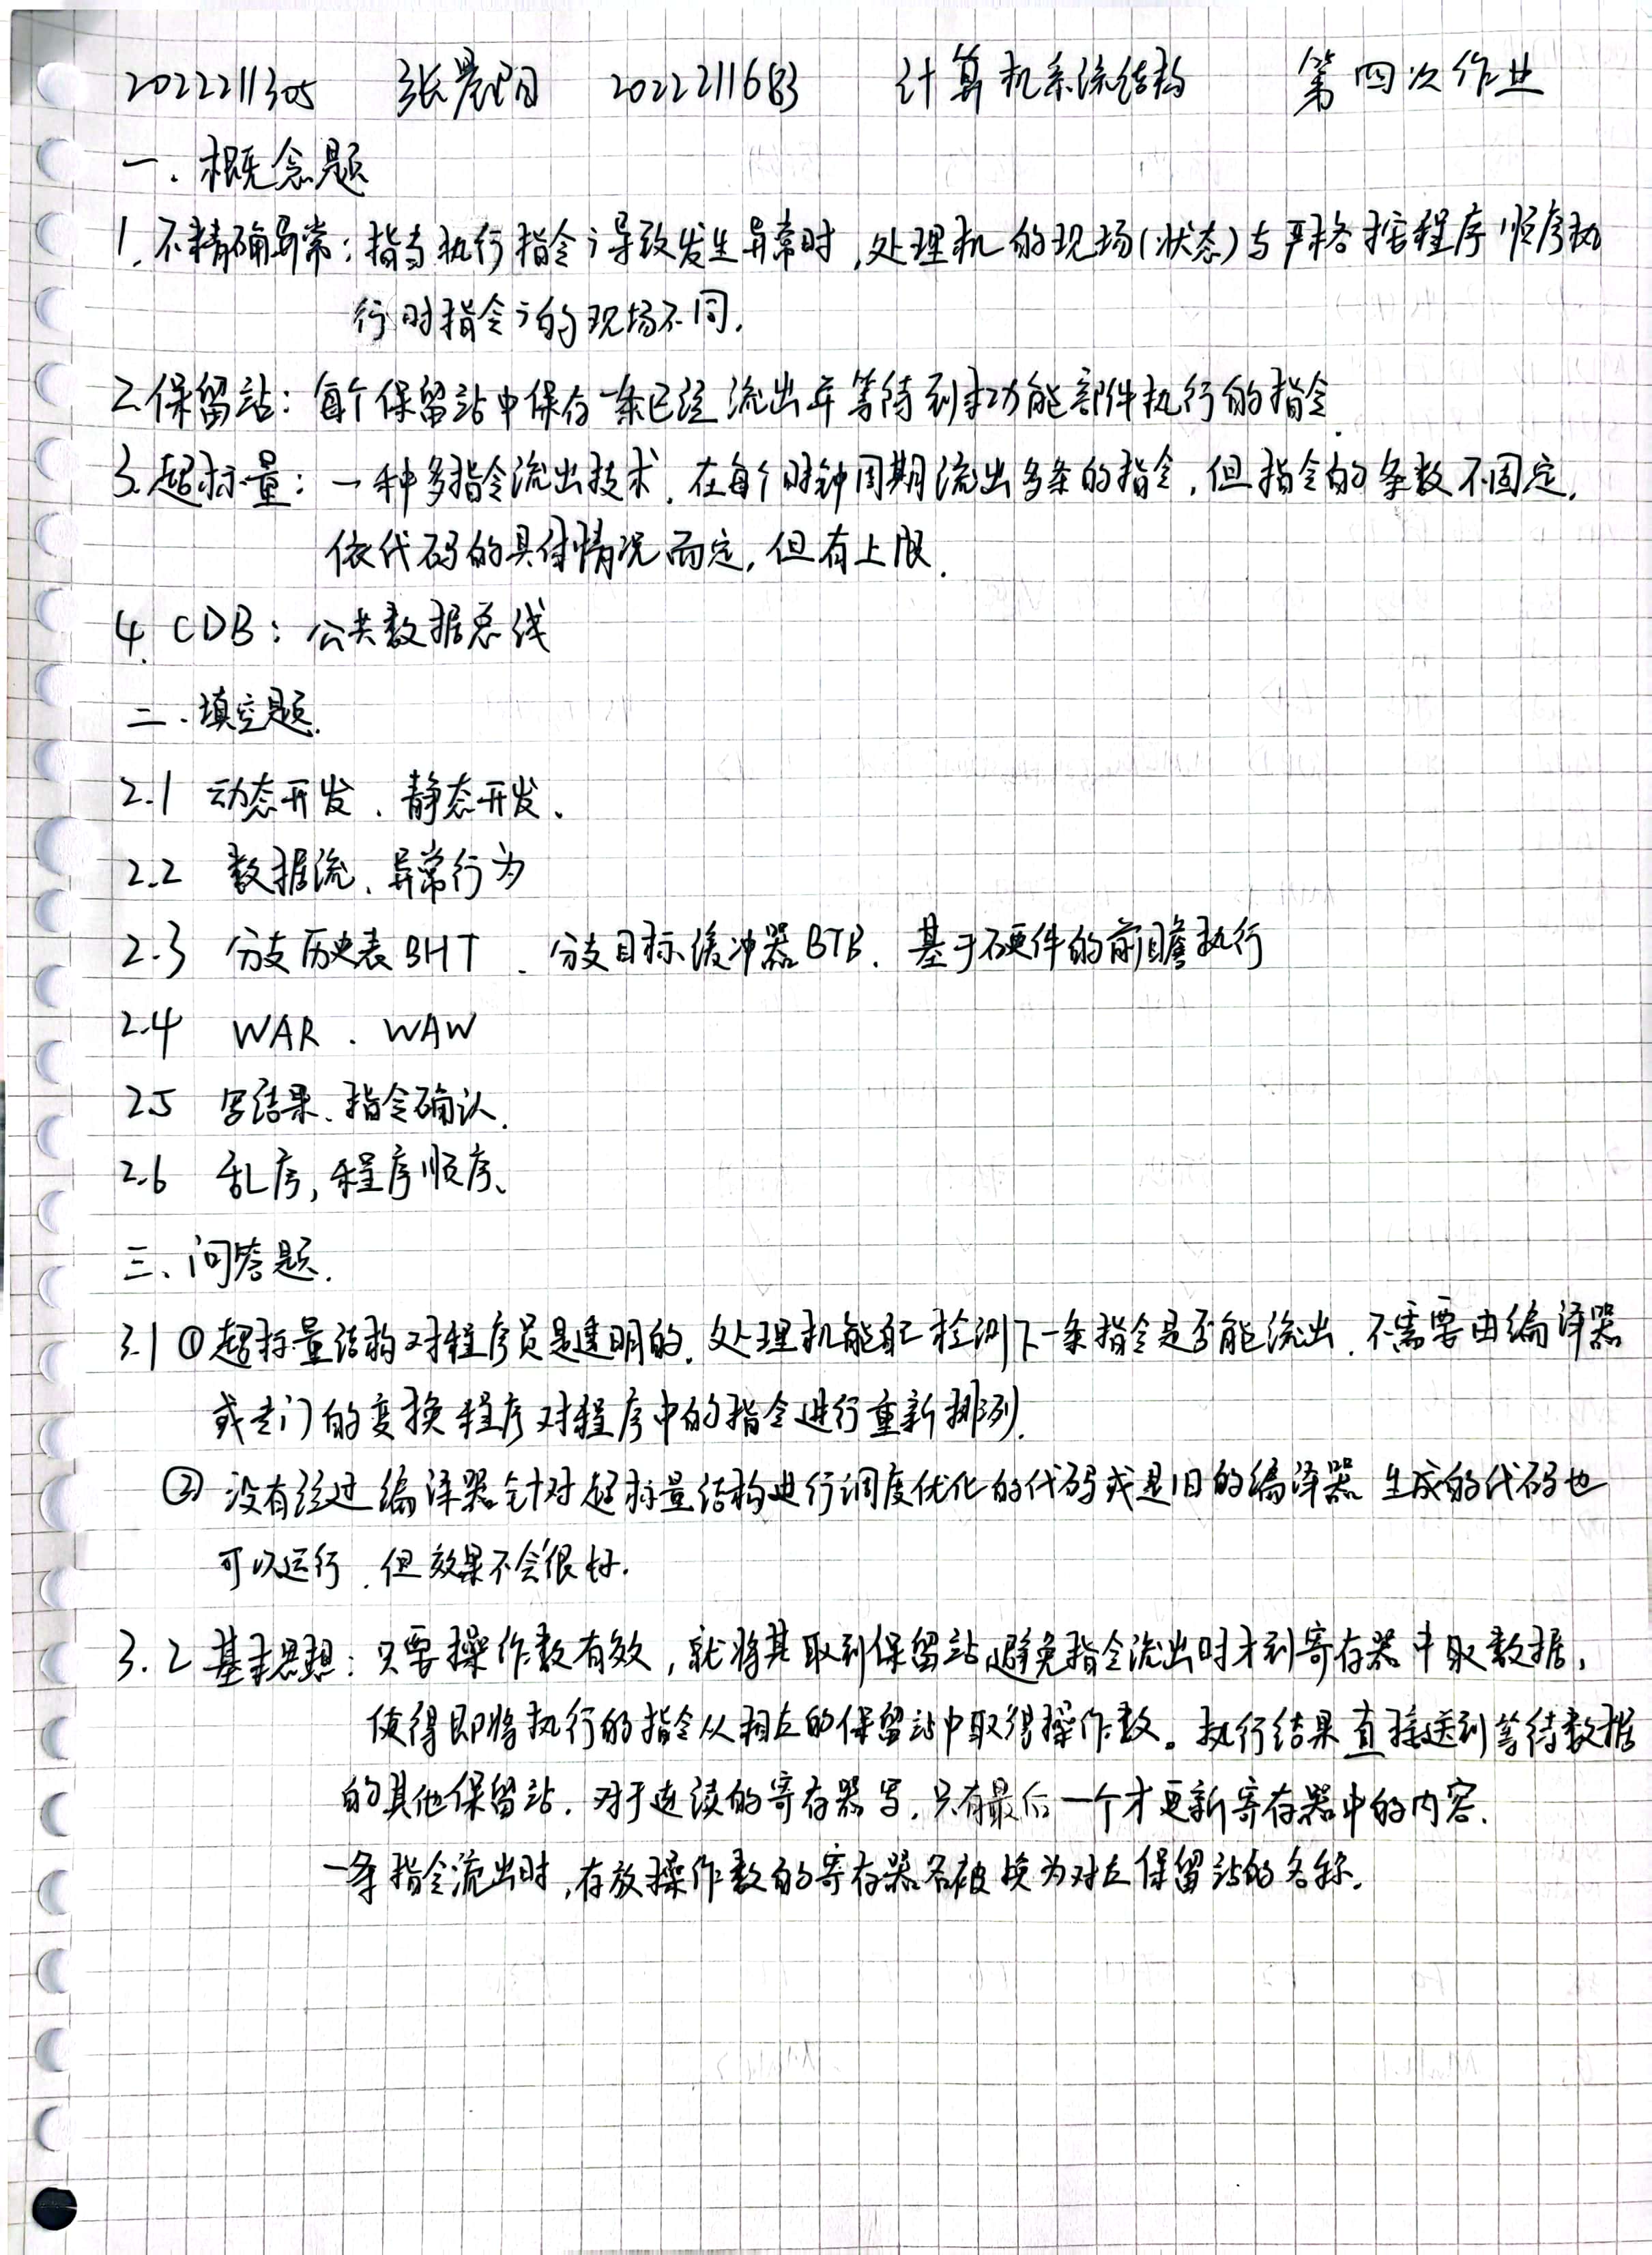 2022211305 张晨阳 2022211683 计算机系统结构 第四次作业
一. 概念题
1. 不精确异常：指当执行指令i导致发生异常时，处理机的现场(状态)与严格按程序顺序执
行时指令i的现场不同.
2. 保留站：每个保留站中保存一条已经流出并等待到本功能部件执行的指令.
3. 超标量：一种多指令流出技术. 在每个时钟周期流出多条的指令, 但指令的条数不固定,
依代码的具体情况而定, 但有上限.
4. CDB：公共数据总线
二. 填空题.
2.1 动态开发、静态开发.
2.2 数据流、异常行为
2.3 分支历史表BHT、分支目标缓冲器BTB、基于硬件的前瞻执行
2.4 WAR、WAW
2.5 写结果、指令确认.
2.6 乱序, 程序顺序.
三、问答题.
3.1 ①超标量结构对程序员是透明的, 处理机能自己检测下一条指令是否能流出, 不需要由编译器
或专门的变换程序对程序中的指令进行重新排列.
② 没有经过编译器针对超标量结构进行调度优化的代码或是旧的编译器生成的代码也
可以运行, 但效果不会很好.
3.2 基本思想：只要操作数有效, 就将其取到保留站, 避免指令流出时才到寄存器中取数据,
使得即将执行的指令从相应的保留站中取得操作数。执行结果直接送到等待数据
的其他保留站. 对于连续的寄存器写, 只有最后一个才更新寄存器中的内容.
一条指令流出时, 存放操作数的寄存器名被换为对应保留站的名称.